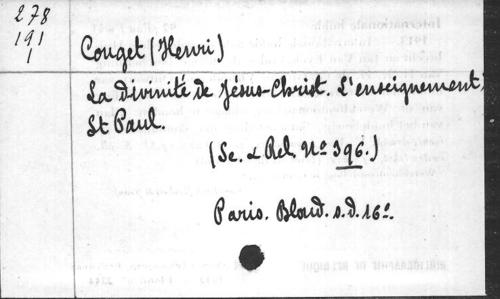 278
191
1
Couget (Henri)
La Divinité de Jésus-Christ. L'enseignement
St Paul.
(Sc. & Rel. No 396.)
Paris. Bloud. s.d. 16o.